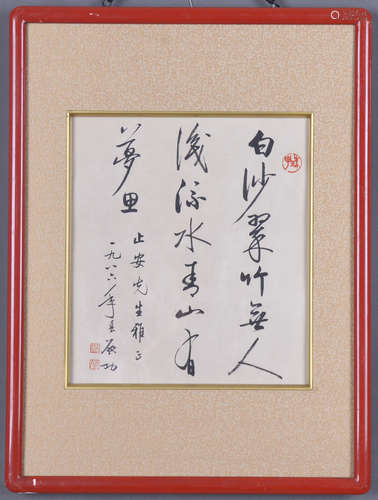 白沙翠竹無人
浅流水青山有
夢思
止安先生雅正
一九八六年春启功